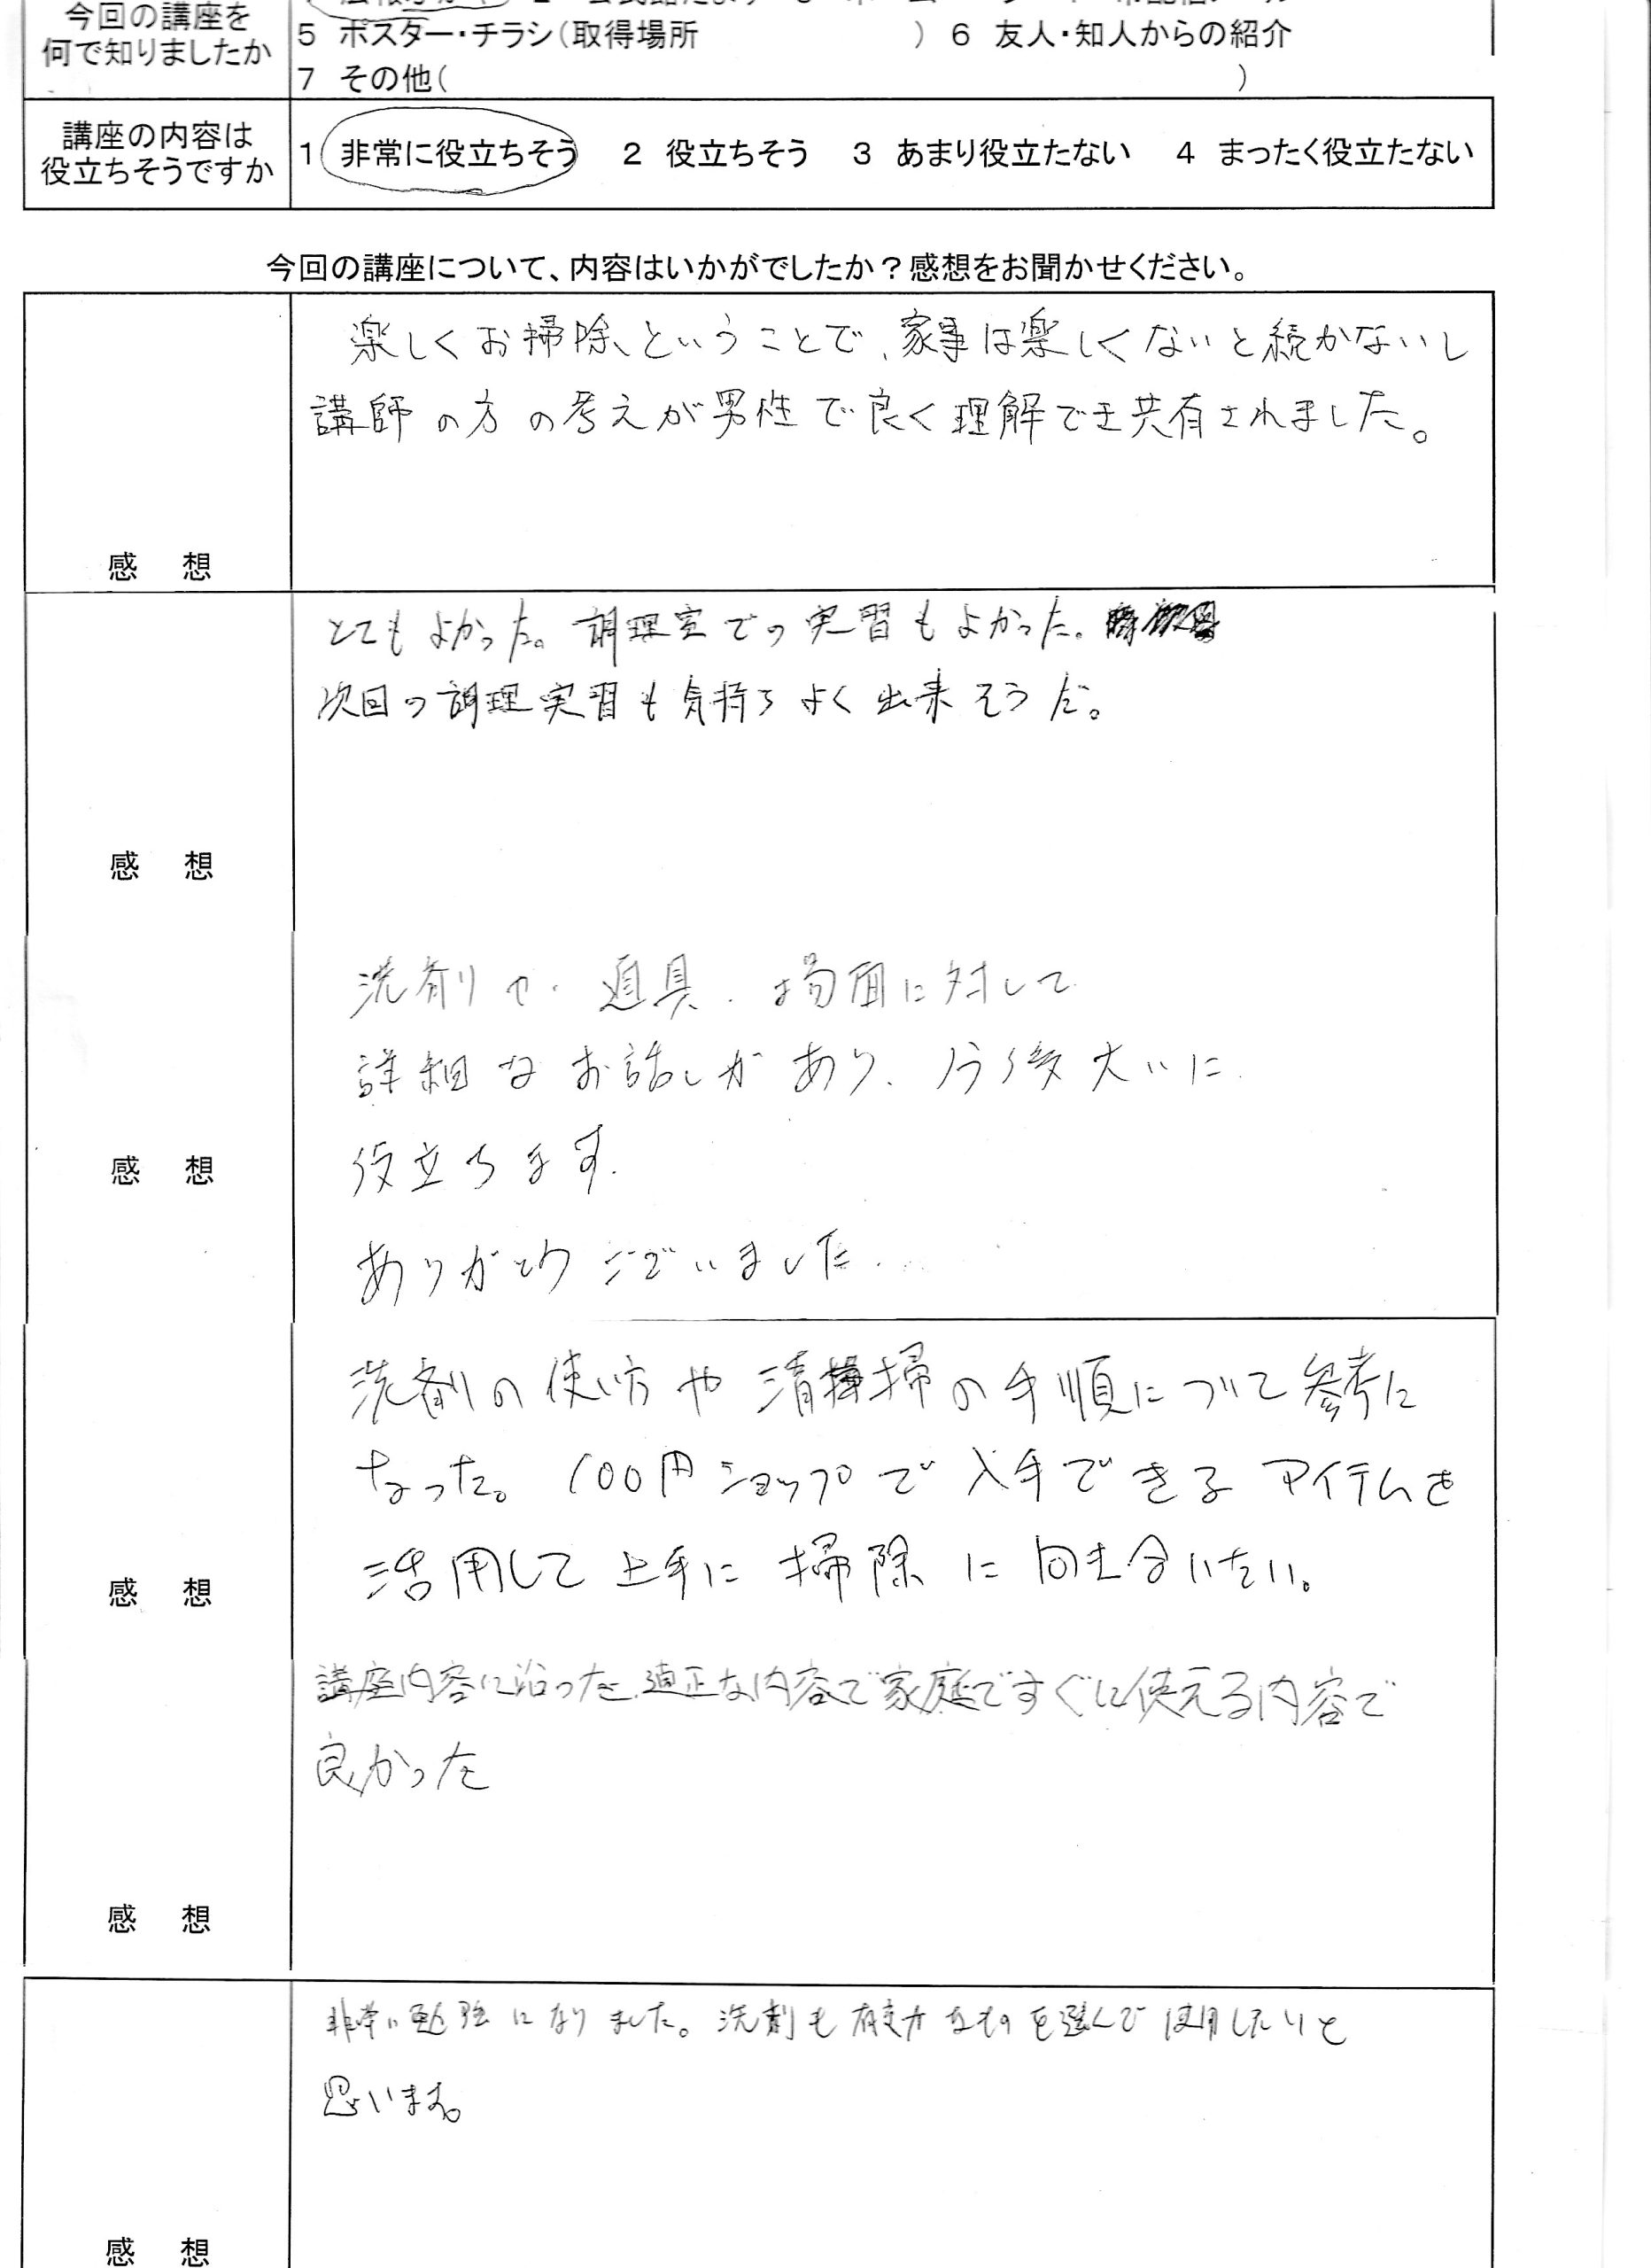 今回の講座を
何で知りましたか
5 ポスター・チラシ(取得場所 ) 6 友人・知人からの紹介
7 その他( )
講座の内容は
役立ちそうですか
1 非常に役立ちそう 2 役立ちそう 3 あまり役立たない 4 まったく役立たない
今回の講座について、内容はいかがでしたか?感想をお聞かせください。
楽しくお掃除、ということで、家事は楽しくないと続かないし
講師の方の考えが男性で良く理解でき共有されました。
感 想
とてもよかった。調理室での実習もよかった。
次回の調理実習も気持ちよく出来そうだ。
感 想
洗剤や、道具、場面に対して
詳細なお話しがあり、今後大いに
役立ちます。
ありがとうございました.
感 想
洗剤の使い方や清掃の手順について参考に
なった。100円ショップで入手できるアイテムを
活用して上手に掃除に向き合いたい。
感 想
講座内容に沿った適正な内容で家庭ですぐに使える内容で
良かった
感 想
非常に勉強になりました。洗剤も有効なものを選んで使用したいと
思います。
感 想